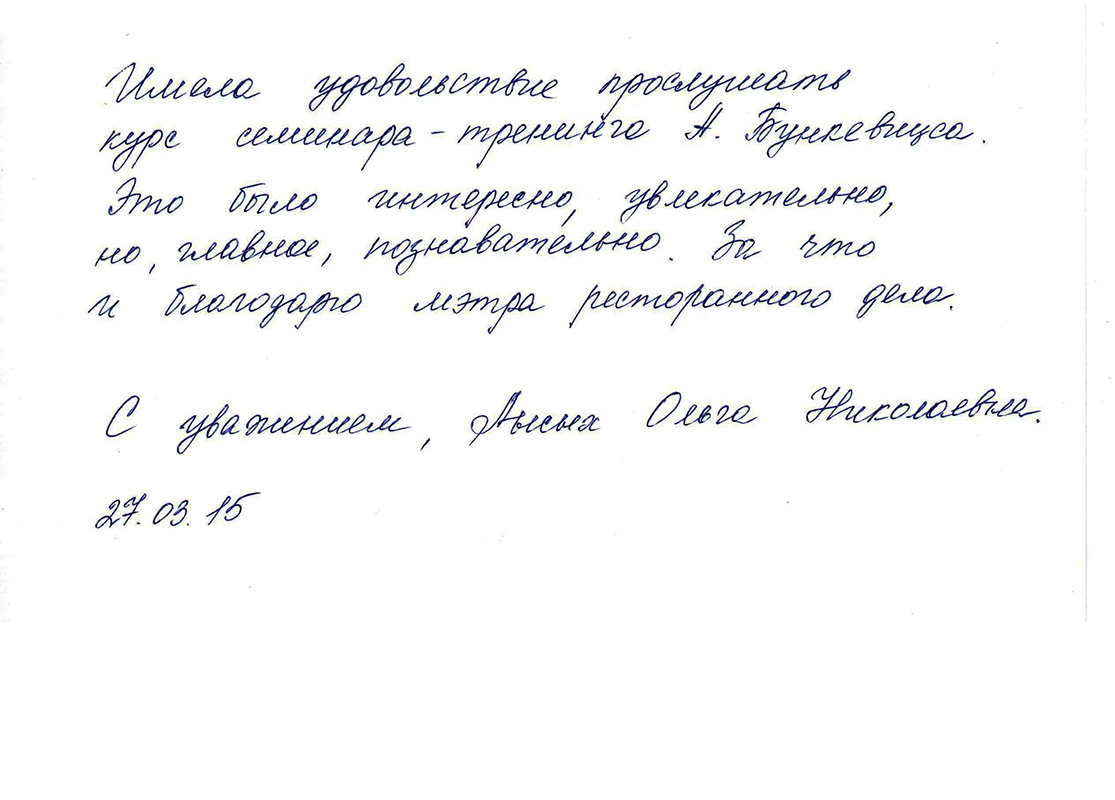 Имела удовольствие прослушать
курс семинара - тренинга А. Бункевицса.
Это было интересно, увлекательно,
но, главное, познавательно. За что
и благодарю мэтра ресторанного дела.
С уважением, Лысых Ольга Николаевна.
27.03.15